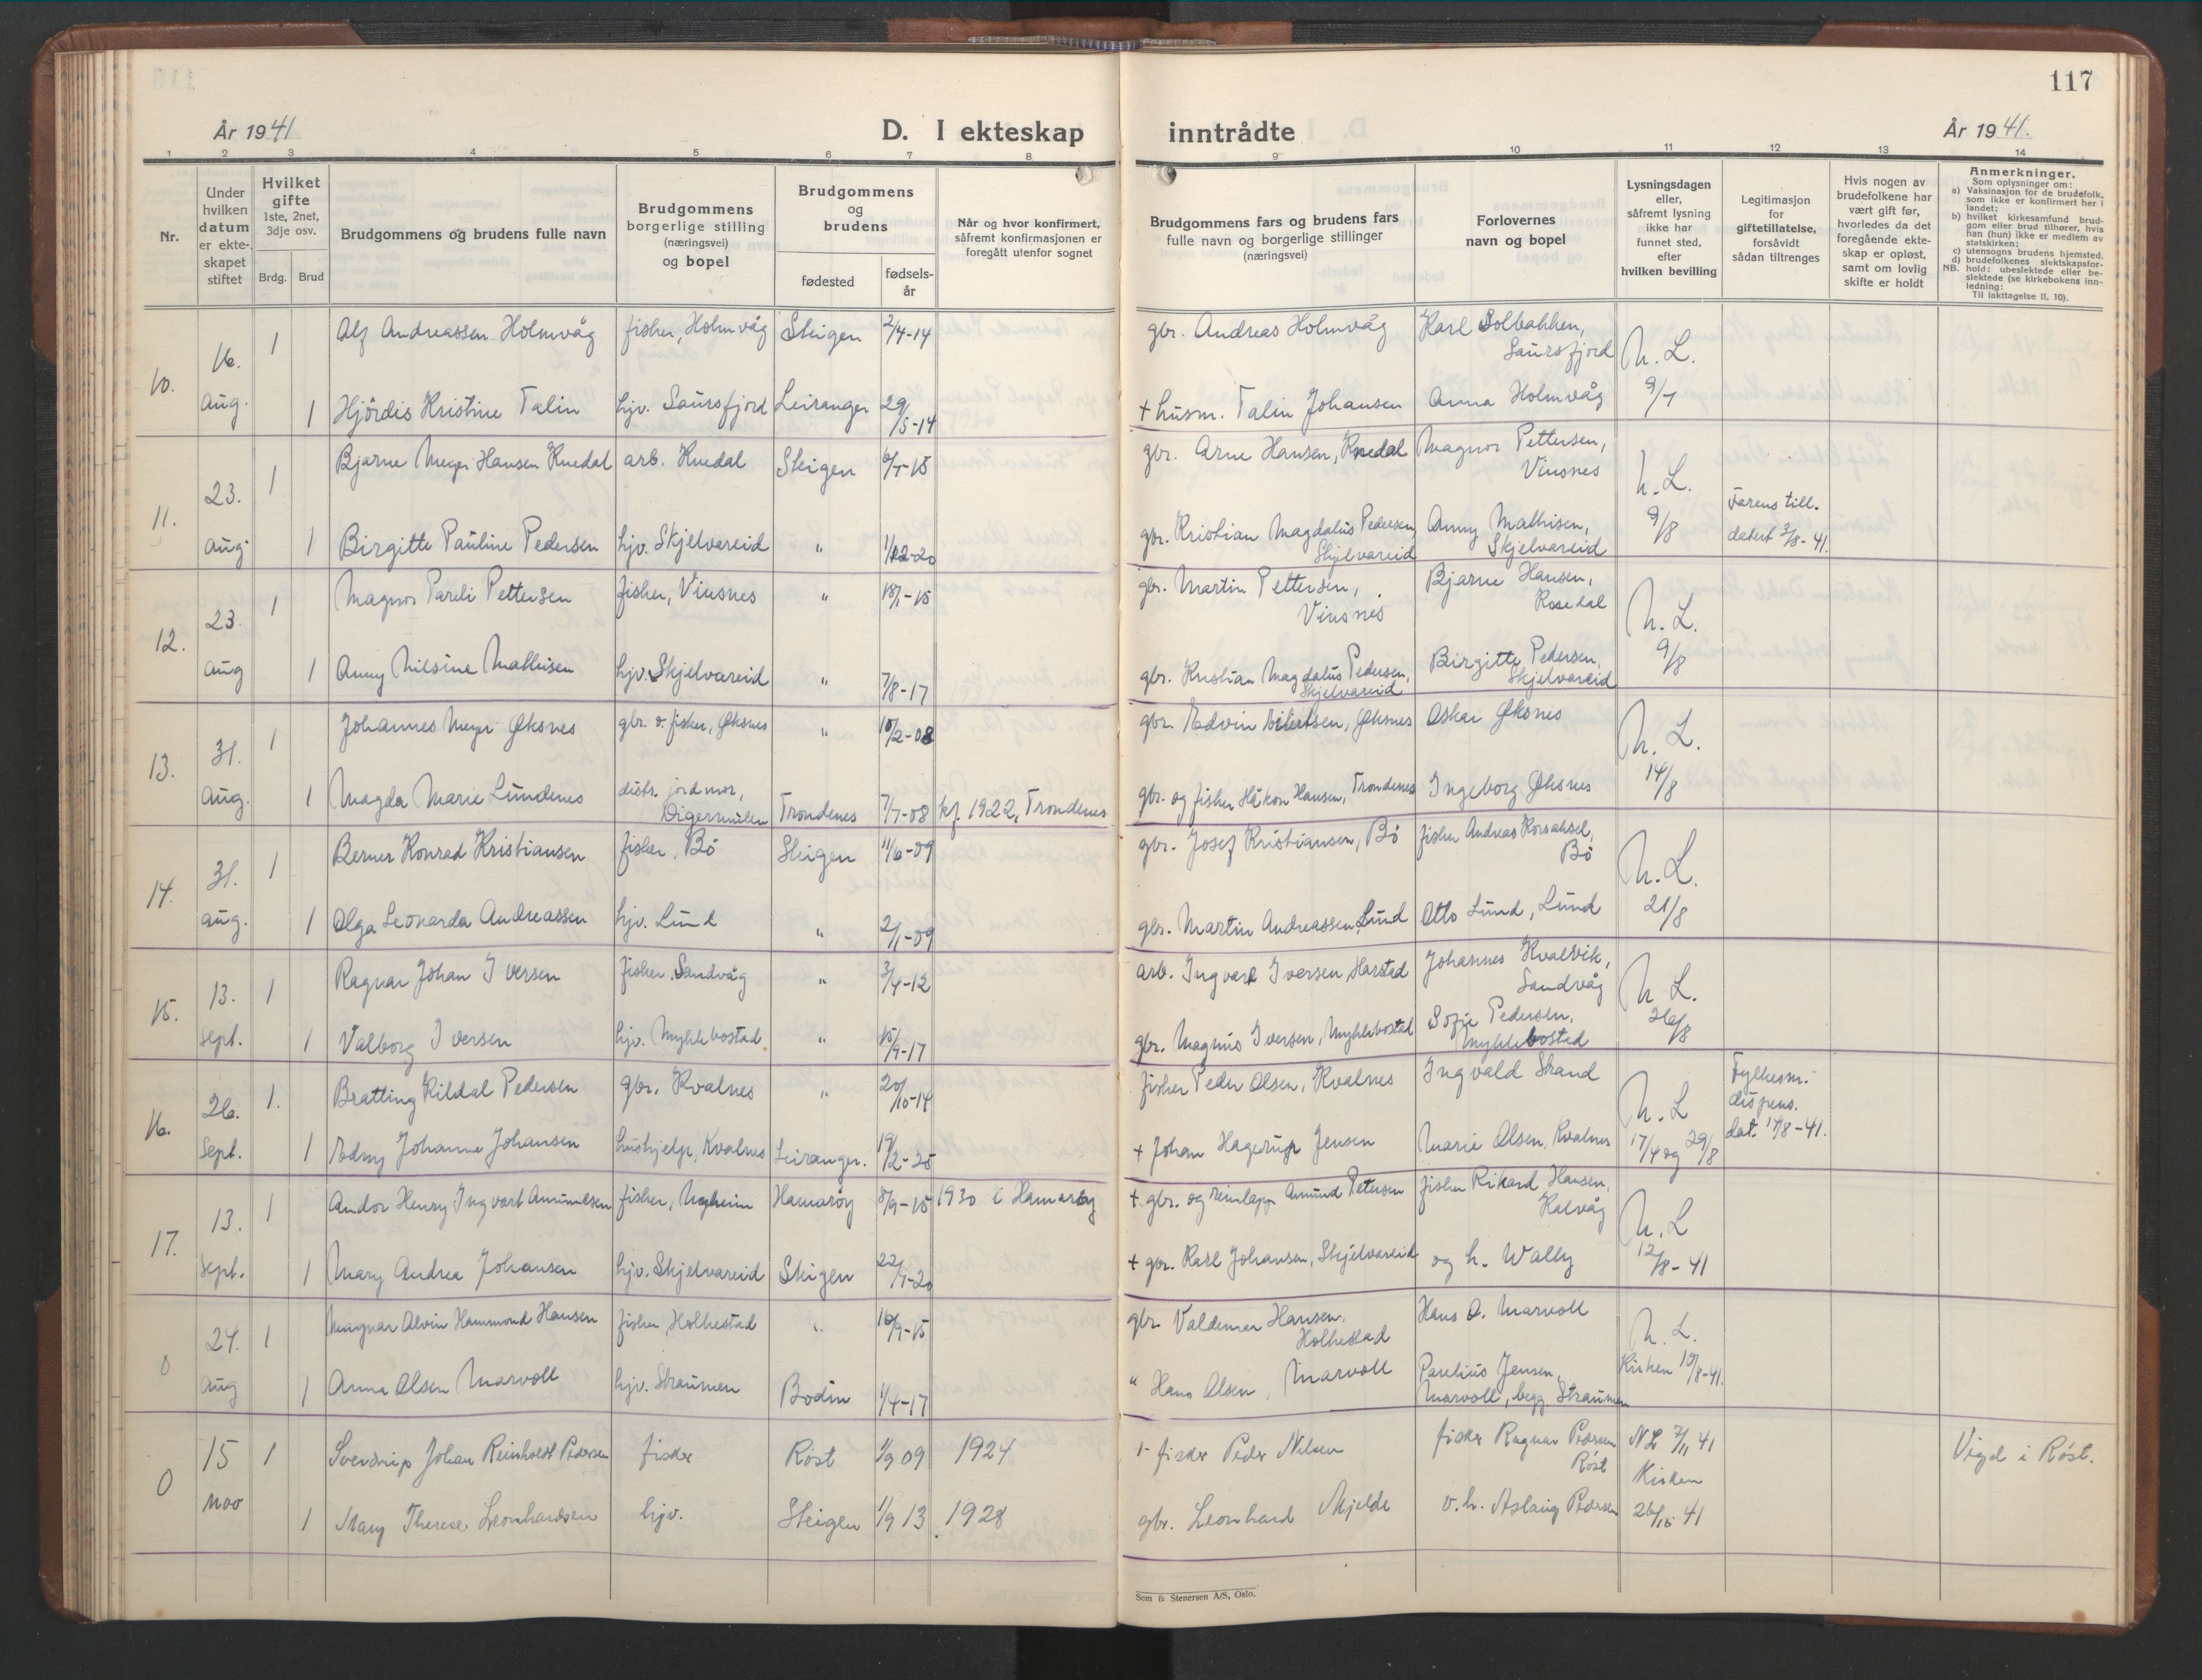 117
År 1941
D. I ekteskap inntrådte
År 1941.
1 2 3 4 5 6 7 8 9 10 11 12 13 14
Nr.
Under hvilken datum er ekteskapet stiftet
Hvilket gifte 1ste, 2net, 3dje osv.
Brdg. Brud
Brudgommens og brudens fulle navn
Brudgommens borgerlige stilling (næringsvei) og bopel
Brudgommens og brudens
fødested
fødselsår
Når og hvor konfirmert, såfremt konfirmasjonen er foregått utenfor sognet
Brudgommens fars og brudens fars fulle navn og borgerlige stillinger (næringsvei)
Forlovernes navn og bopel
Lysningsdagen eller, såfremt lysning ikke har funnet sted, efter hvilken bevilling
Legitimasjon for giftetillatelse, forsåvidt sådan tiltrenges
Hvis nogen av brudefolkene har vært gift før, hvorledes da det foregående ekteskap er opløst, samt om lovlig skifte er holdt
Anmerkninger.
Som oplysninger om:
a) Vaksinasjon for de brudefolk, som ikke er konfirmert her i landet;
b) hvilket kirkesamfund brudgom eller brud tilhører, hvis han (hun) ikke er medlem av statskirken;
c) utensogns brudens hjemsted.
d) brudefolkenes slektskapsforhold: ubeslektede eller beslektede (se kirkebokens innledning:
NB. Til iakttagelse II, 10).
10. 16. aug. 1 Alf Andreassen Holmvåg fisker, Holmvåg Steigen 2/4-14 gbr. Andreas Holmvåg Karl Solbakken, Saursfjord N. L. 9/7
1 Hjördis Kristine Talin hjv. Saursfjord Leiranger 29/5-14 + husm. Talin Johansen Anna Holmvåg
11. 23. aug 1 Bjarne Meyer Hansen Knedal arb. Knedal Steigen 6/7-15 gbr. Arne Hansen, Knedal Magnor Pettersen, Vinsnes N. L. 9/8 Farens till. datert 3/8-41.
1 Birgitte Pauline Pedersen hjv. Skjelvareid " 1/12-20 gbr. Kristian Magdalus Pedersen, Skjelvareid Anny Mathisen, Skjelvareid
12. 23. aug 1 Magnor Pareli Pettersen fisker, Vinsnes " 18/1-15 gbr. Martin Pettersen, Vinsnes Bjarne Hansen, Rosedal N. L. 9/8
1 Anny Nilsine Mathisen hjv. Skjelvareid " 7/8-17 gbr. Kristian Magdalus Pedersen, Skjelvareid Birgitte Pedersen, Skjelvareid
13. 31. aug. 1 Johannes Meyer Øksnes gbr. o. fisker, Øksnes " 10/2-08 gbr. Edvin Øksnes Oskar Øksnes N. L. 14/8
1 Magda Marie Lundenes distr. jordmor, Digermulen Trondenes 7/7-08 kf. 1922, Trondenes gbr. og fisker Håkon Hansen, Trondenes Ingeborg Øksnes
14. 31. aug. 1 Berner Konrad Kristiansen fisker, Bö Steigen 11/6-09 gbr. Josef Kristiansen, Bö fisker Andreas Korsaksel, Bö N. L. 21/8
1 Olga Leonarda Andreassen hjv. Lund " 2/1-09 gbr. Martin Andreassen, Lund Otto Lund, Lund
15. 13. sept. 1 Ragnar Johan Iversen fisker, Sandvåg " 3/4-12 arb. Ingvard Iversen, Harstad Johannes Kvalvik, Sandvåg N L. 26/8
1 Valborg Iversen hjv. Myklebostad " 15/9-17 gbr. Magnus Iversen, Myklebostad Sofie Pedersen, Myklebostad
16. 26. sept. 1. Bratting Kildal Pedersen gbr. Kvalnes " 20/10-14 fisker Peder Olsen, Kvalnes Ingvald Strand N. L 17/4 og 29/8 Fylkesm. dispens. dat. 14/8-41.
1 Edny Johanne Johansen hushjelp, Kvalnes Leiranger. 19/2-25 + Johan Hagerup Jensen Marie Olsen, Kvalnes
17. 13. sept. 1 Andor Henry Ingvart Amundsen fisker, Nyheim Hamaröy 8/9-15 1930 i Hamaröy + gbr. og reinlapp Amund Petersen fisker Rikard Hansen, Kalvåg N. L 12/8-41
1 Mary Andrea Johansen hjv. Skjelvareid Steigen 22/9-20 + gbr. Karl Johansen, Skjelvareid og h. Wally
0 24. aug 1 Magnar Alvin Hammond Hansen fisker, Holkestad " 16/9-15 gbr. Valdemar Hansen, Holkestad Hans O. Marvoll N. L. Kirken 10/8-41.
1 Anna Olsen Marvoll hjv. Straumen Bodin 1/4-17 " Hans Olsen, Marvoll Paulius Jensen, Marvoll, begg. Straumen
0 15 nov 1 Sverdrup Johan Reinholdt Pedersen fisker Röst 1/9 09 1924 + fisker Peder Nilsen fisker Ragnar Pedersen Röst NL 7/11 41 Kirken 26/10 41 Vigd i Röst.
1 Mary Therese Leonhardsen hjv. Steigen 1/9 13 1928 gbr. Leonhard Mjelde o. h. Aslaug Pedersen
Sem & Stenersen A/S, Oslo.